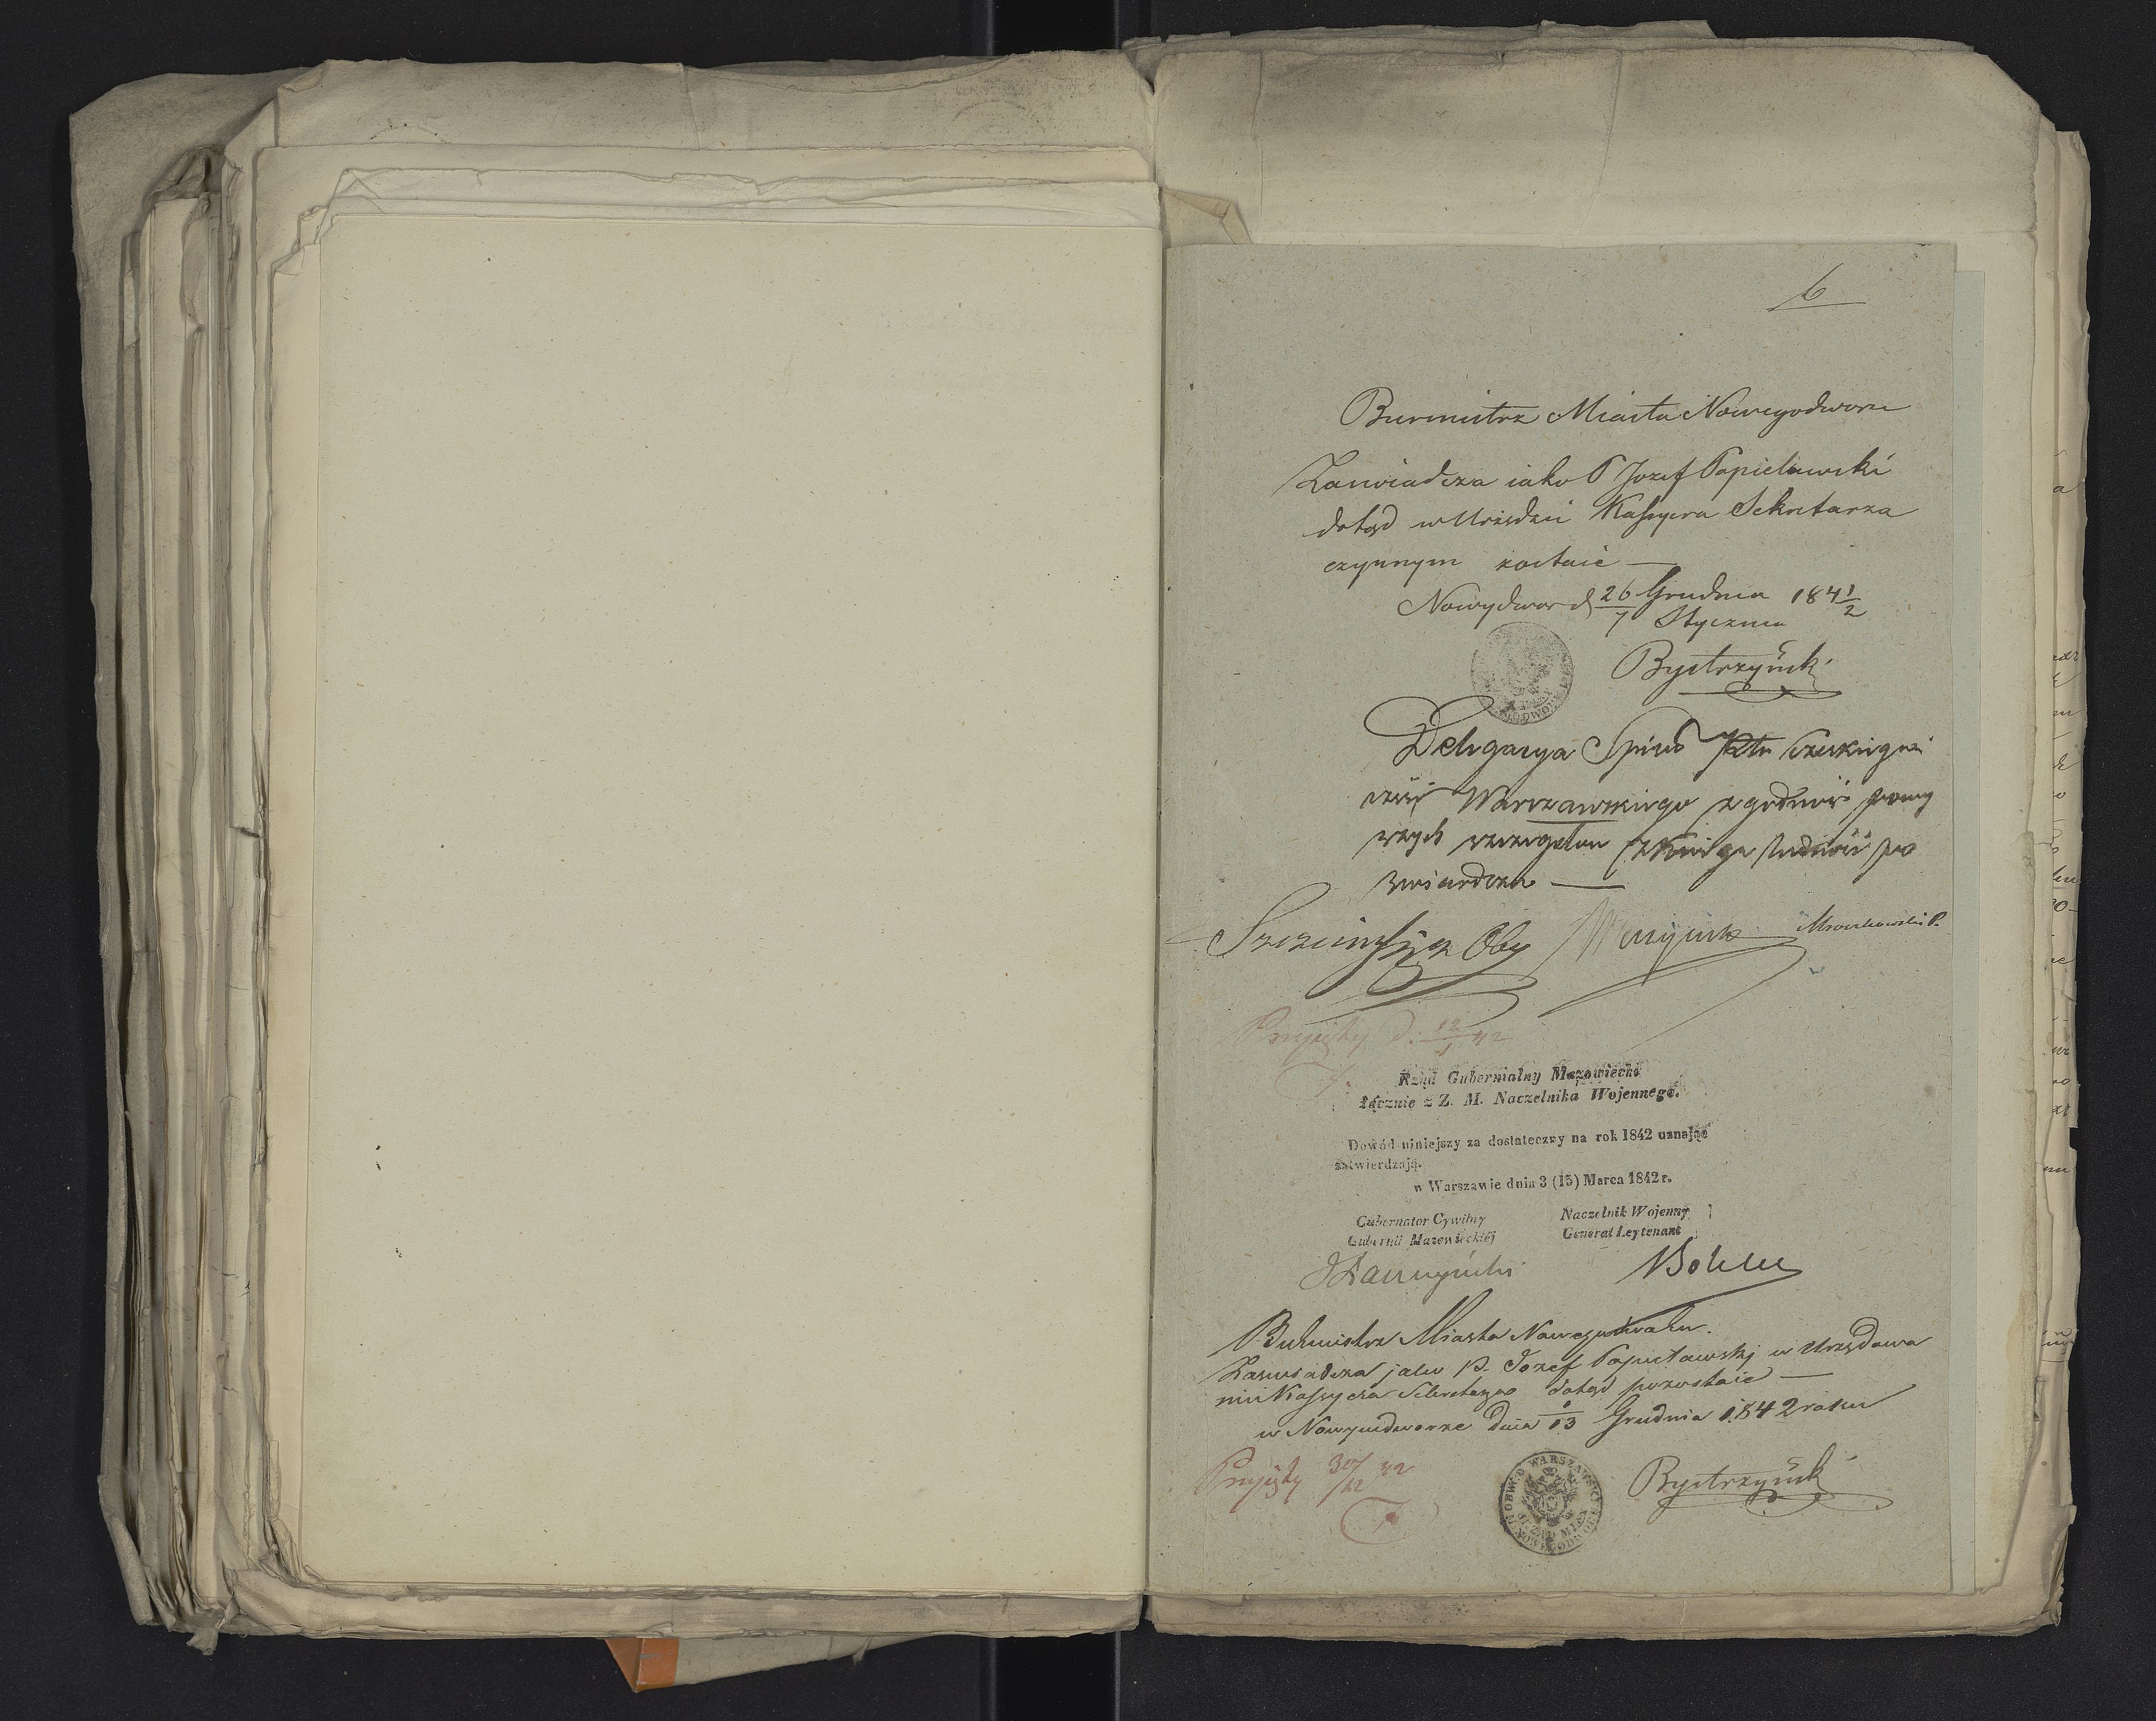 6
Burmistrz Miasta Nowegodworu
Zaswiadcza iako P Jozef Popielawski
dotąd w Urzędzie Kassyera Sekretarza
czynnym zostaie —
Nowydwor d 26/7 Grudnia/Stycznia 184 1/2
Bystrzyński
Delegacya Spisu
Warszawskiego zgodność powy
szych szczegułow z Księgą ludności po
swiadcza —
Oby
Przyięty d. 12/1 42
Rząd Gubernialny Mazowiecki
łącznie z Z. M. Naczelnika Wojennego.
Dowód niniejszy za dostateczny na rok 1842 uznając
zatwierdzają.
w Warszawie dnia 3 (15) Marca 1842 r.
Gubernator Cywilny Naczelnik Wojenny
Gubernii Mazowieckiéj Generał Leytenant
Burmistrz Miasta Nowegodworu.
Zaswiadcza jako P. Jozef Popielawski w Urzędowa
niu Kassyera Sekretarza dotąd pozostaie —
w Nowymdworze dnia 1/13 Grudnia 1842 roku
Przyięty 30/12 42
OBWOD WARSZAWSKI
URZĄD MIASTA
NOWEGODWORU
Bystrzyński